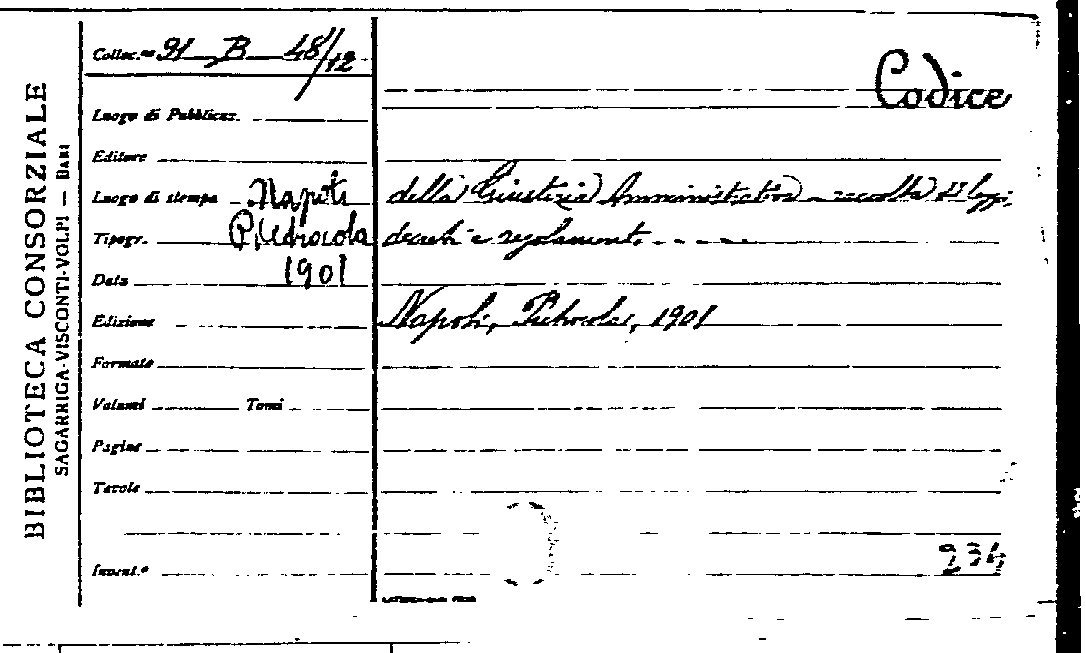 BIBLIOTECA CONSORZIALE
SAGARRIGA-VISCONTI-VOLPI — BARI
Colloc.ne 91 B 48/12
Luogo di Pubblicaz.
Editore
Luogo di stampa Napoli
Tipogr. Pietrocola
Data 1901
Edizione
Formato
Volumi Tomi
Pagine
Tavole
Invent.º
Codice
della Giustizia Amministrativa - raccolta di leggi,
decreti e regolamenti - - - -
Napoli, Pietrocola, 1901
234